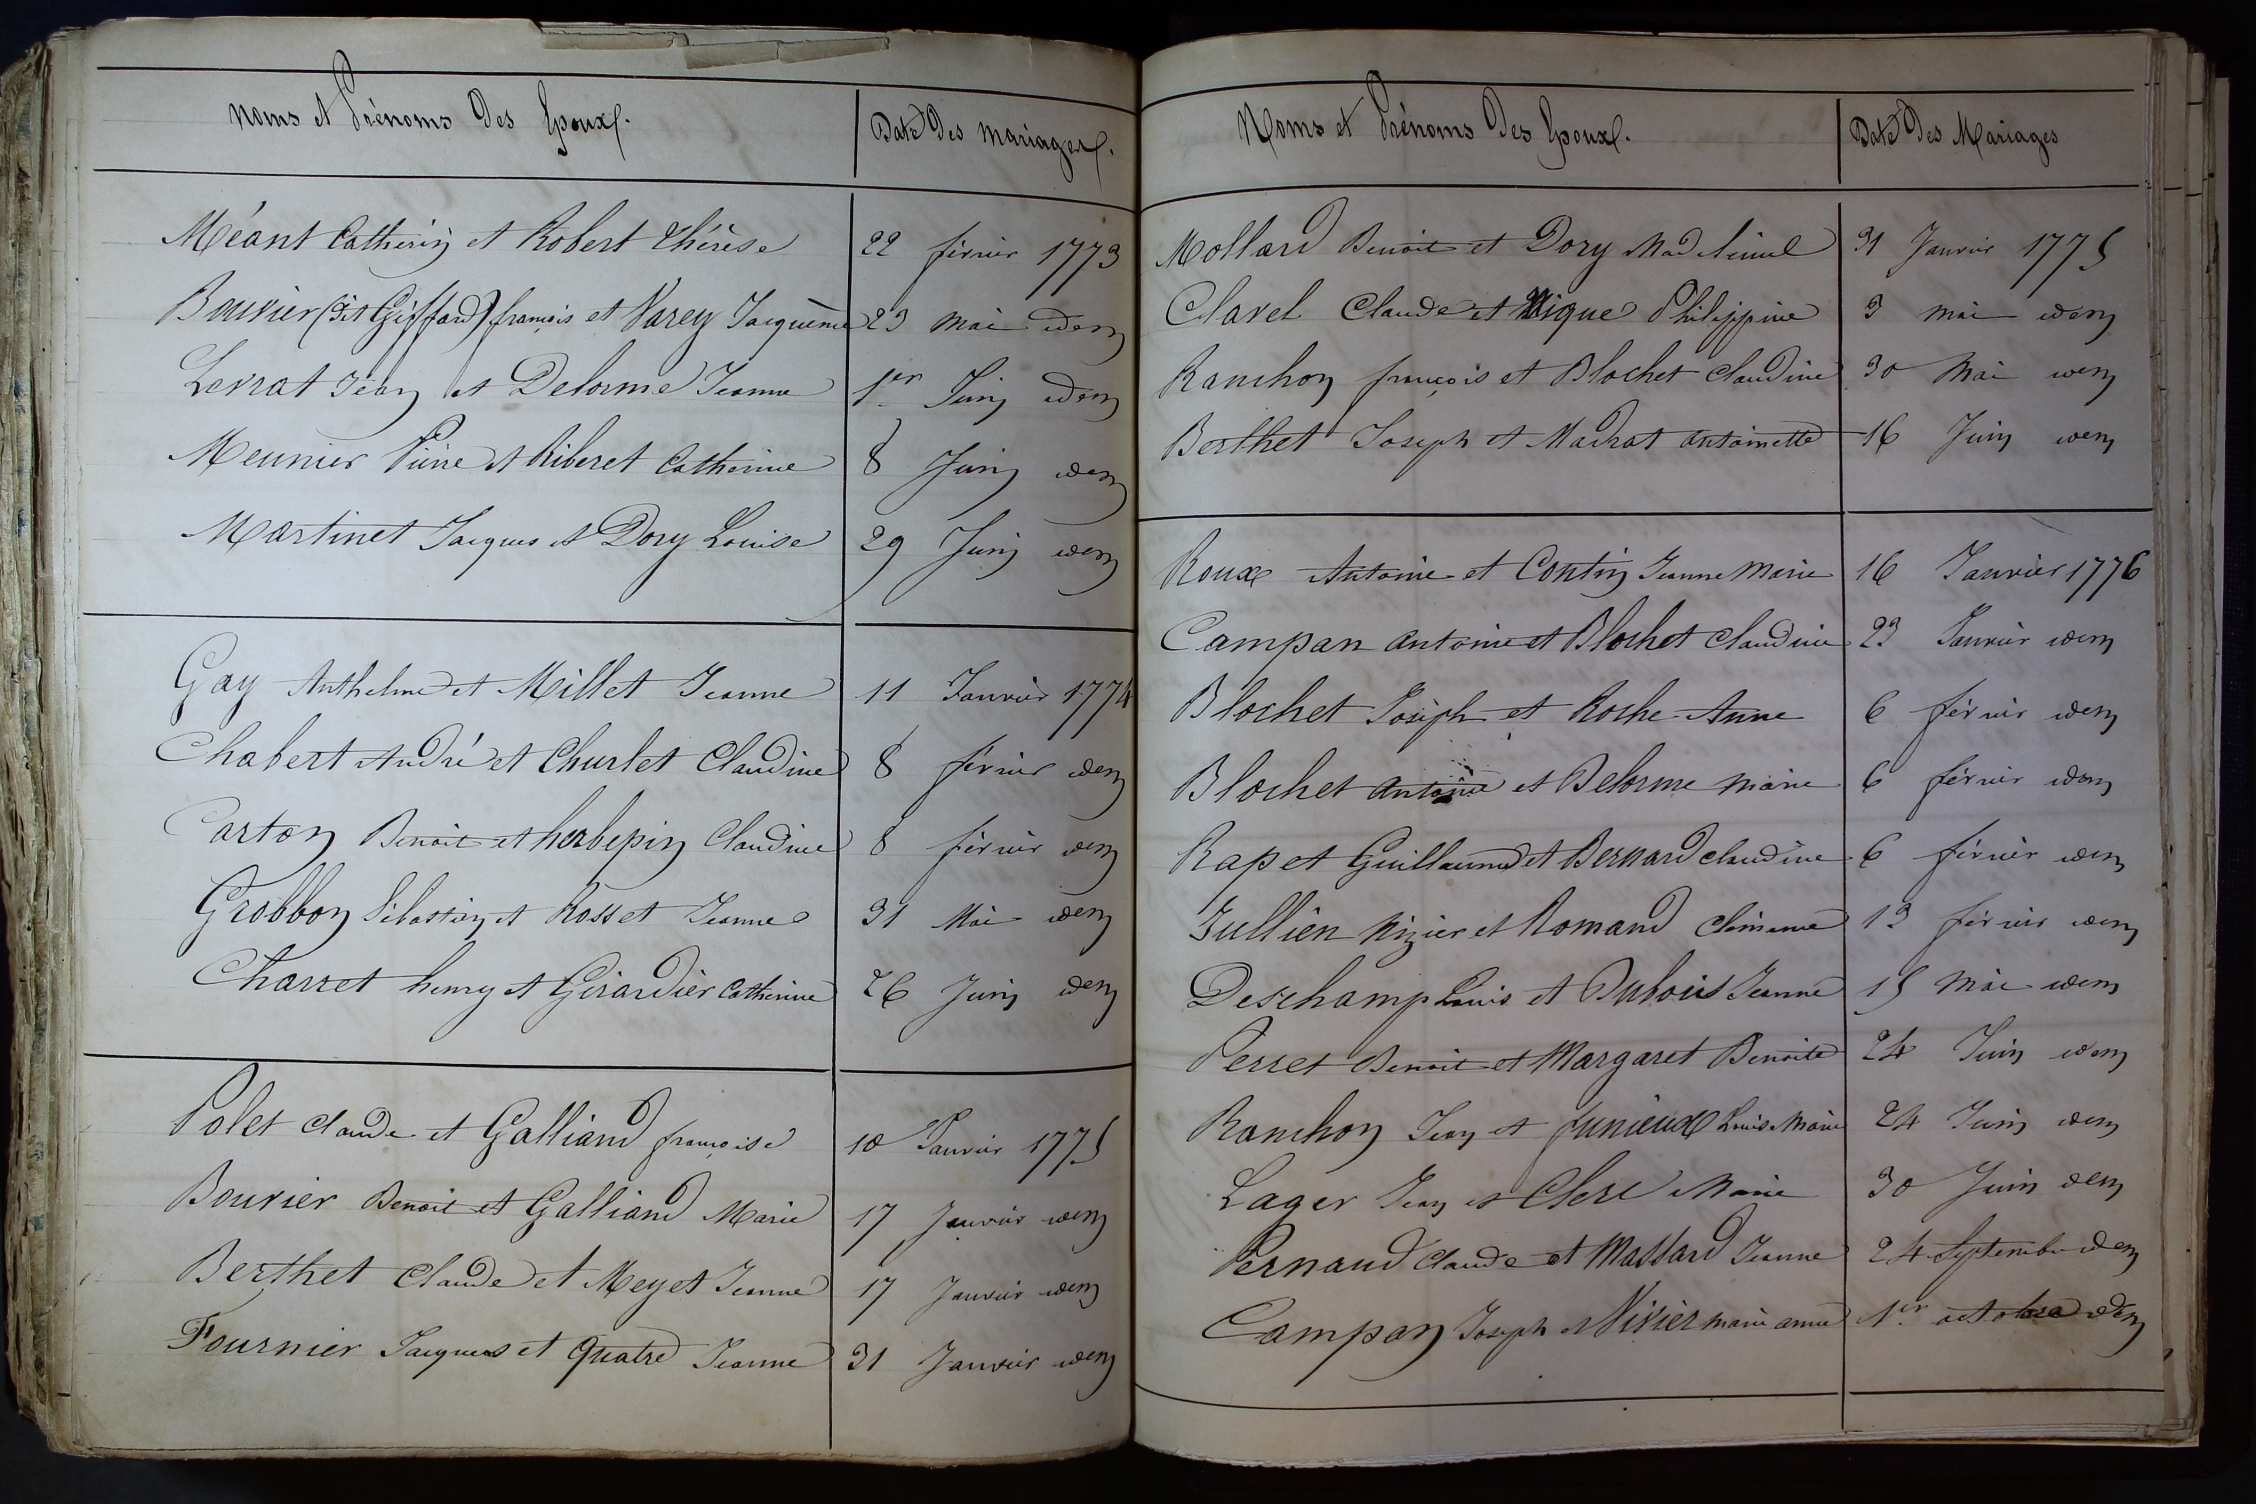 Noms et Prénoms Des Epoux.
Date Des Mariages.
Méant Catherin et Robert Thérèse 22 février 1773
Bouvier (dit Giffard) françois et Varey Jacquème 23 mai idem
Levrat Jean et Delorme Jeanne 1er Juin idem
Meunier Pierre et Riberet Catherine 8 Juin idem
Martinet Jacques et Dory Louise 29 Juin idem
Gay Anthelme et Millet Jeanne 11 Janvier 1774
Chabert André et Churlet Claudine 8 février idem
Carton Benoit et herbepin Claudine 8 février idem
Grobbon Sébastien et Rosset Jeanne 31 Mai idem
Charret henry et Girardier Catherine 26 Juin idem
Polet Claude et Galliand françoise 10 Janvier 1775
Bouvier Benoit et Galliand Marie 17 Janvier idem
Berthet Claude et Meyet Jeanne 17 Janvier idem
Fournier Jacques et Quatre Jeanne 31 Janvier idem
Noms et Prénoms Des Epoux.
Date Des Mariages
Mollard Benoit et Dory 31 Janvier 1775
Clavel Claude et Nique Philippine 3 mai idem
Ranchon françois et Blochet Claudine 30 Mai idem
Berthet Joseph et Madrat Antoinette 16 Juin idem
Roux Antoine et Contin Jeanne Marie 16 Janvier 1776
Campan Antoine et Blochet Claudine 23 Janvier idem
Blochet Joseph et Roche Anne 6 février idem
Blochet Antoine et Delorme Marie 6 février idem
Rapet Guillaume et Bernard Claudine 6 février idem
Jullien Nizier et Romand Clémence 13 février idem
Deschamp Louis et Dubois Jeanne 15 Mai idem
Perret Benoit et Margaret Benoite 24 Juin idem
Ranchon Jean et Junieux Louise Marie 24 Juin idem
Lager Jean et Clerc Marie 30 Juin idem
Pernaud Claude et Massard Jeanne 24 Septembre idem
Campan Joseph et Nivier marie anne 1er octobre idem